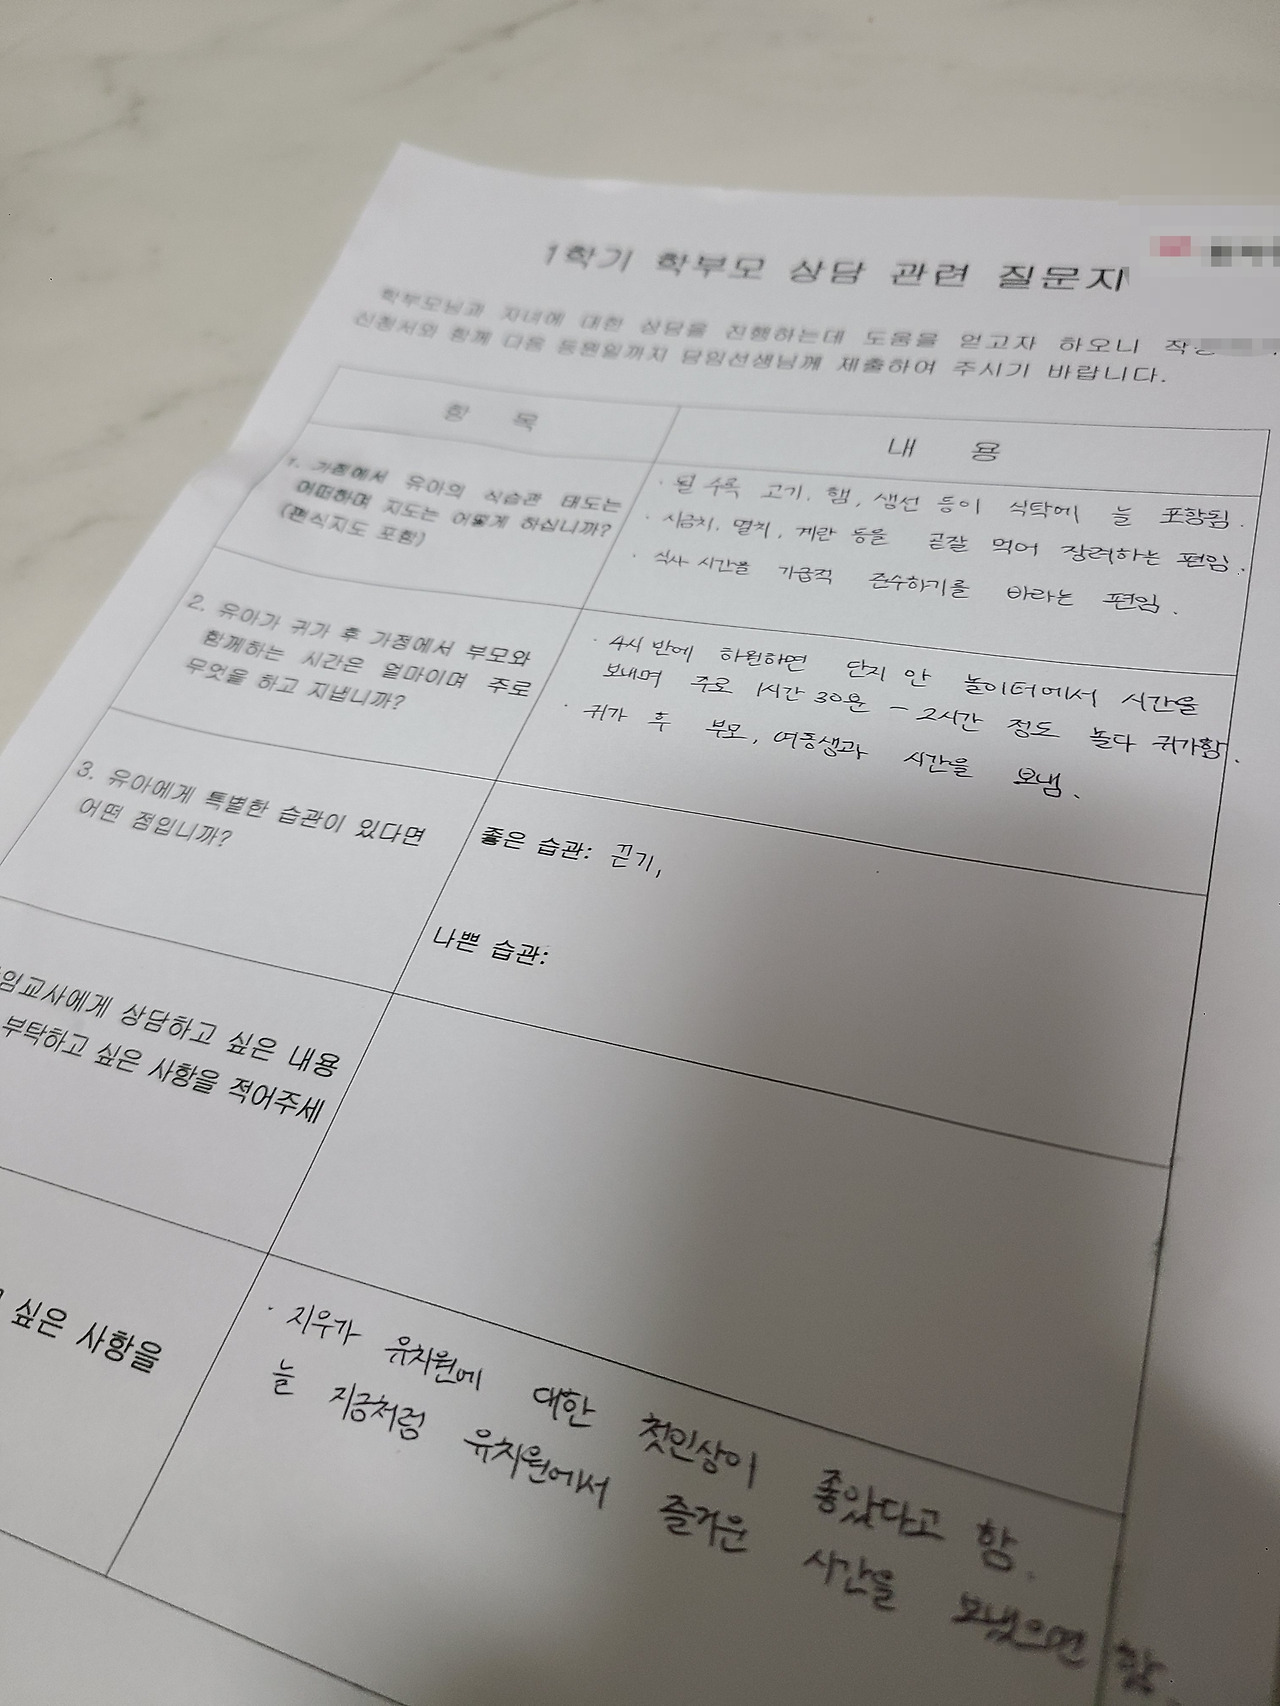 1학기 학부모 상담 관련 질문지
학부모님과 자녀에 대한 상담을 진행하는데 도움을 얻고자 하오니
신청서와 함께 다음 등원일까지 담임선생님께 제출하여 주시기 바랍니다.
항 목
내 용
1. 가정에서 유아의 식습관 태도는
어떠하며 지도는 어떻게 하십니까?
(편식지도 포함)
· 될 수록 고기, 햄, 생선 등이 식탁에 늘 포함됨.
· 시금치, 멸치, 계란 등을 곧잘 먹어 장려하는 편임.
· 식사 시간을 가급적 준수하기를 바라는 편임.
2. 유아가 귀가 후 가정에서 부모와
함께하는 시간은 얼마이며 주로
무엇을 하고 지냅니까?
· 4시 반에 하원하면 단지 안 놀이터에서 시간을
보내며 주로 1시간 30분 - 2시간 정도 놀다 귀가함.
· 귀가 후 부모, 여동생과 시간을 보냄.
3. 유아에게 특별한 습관이 있다면
어떤 점입니까?
좋은 습관: 끈기,
나쁜 습관:
임교사에게 상담하고 싶은 내용
부탁하고 싶은 사항을 적어주세
싶은 사항을
· 지우가 유치원에 대한 첫인상이 좋았다고 함.
늘 지금처럼 유치원에서 즐거운 시간을 보냈으면 함.